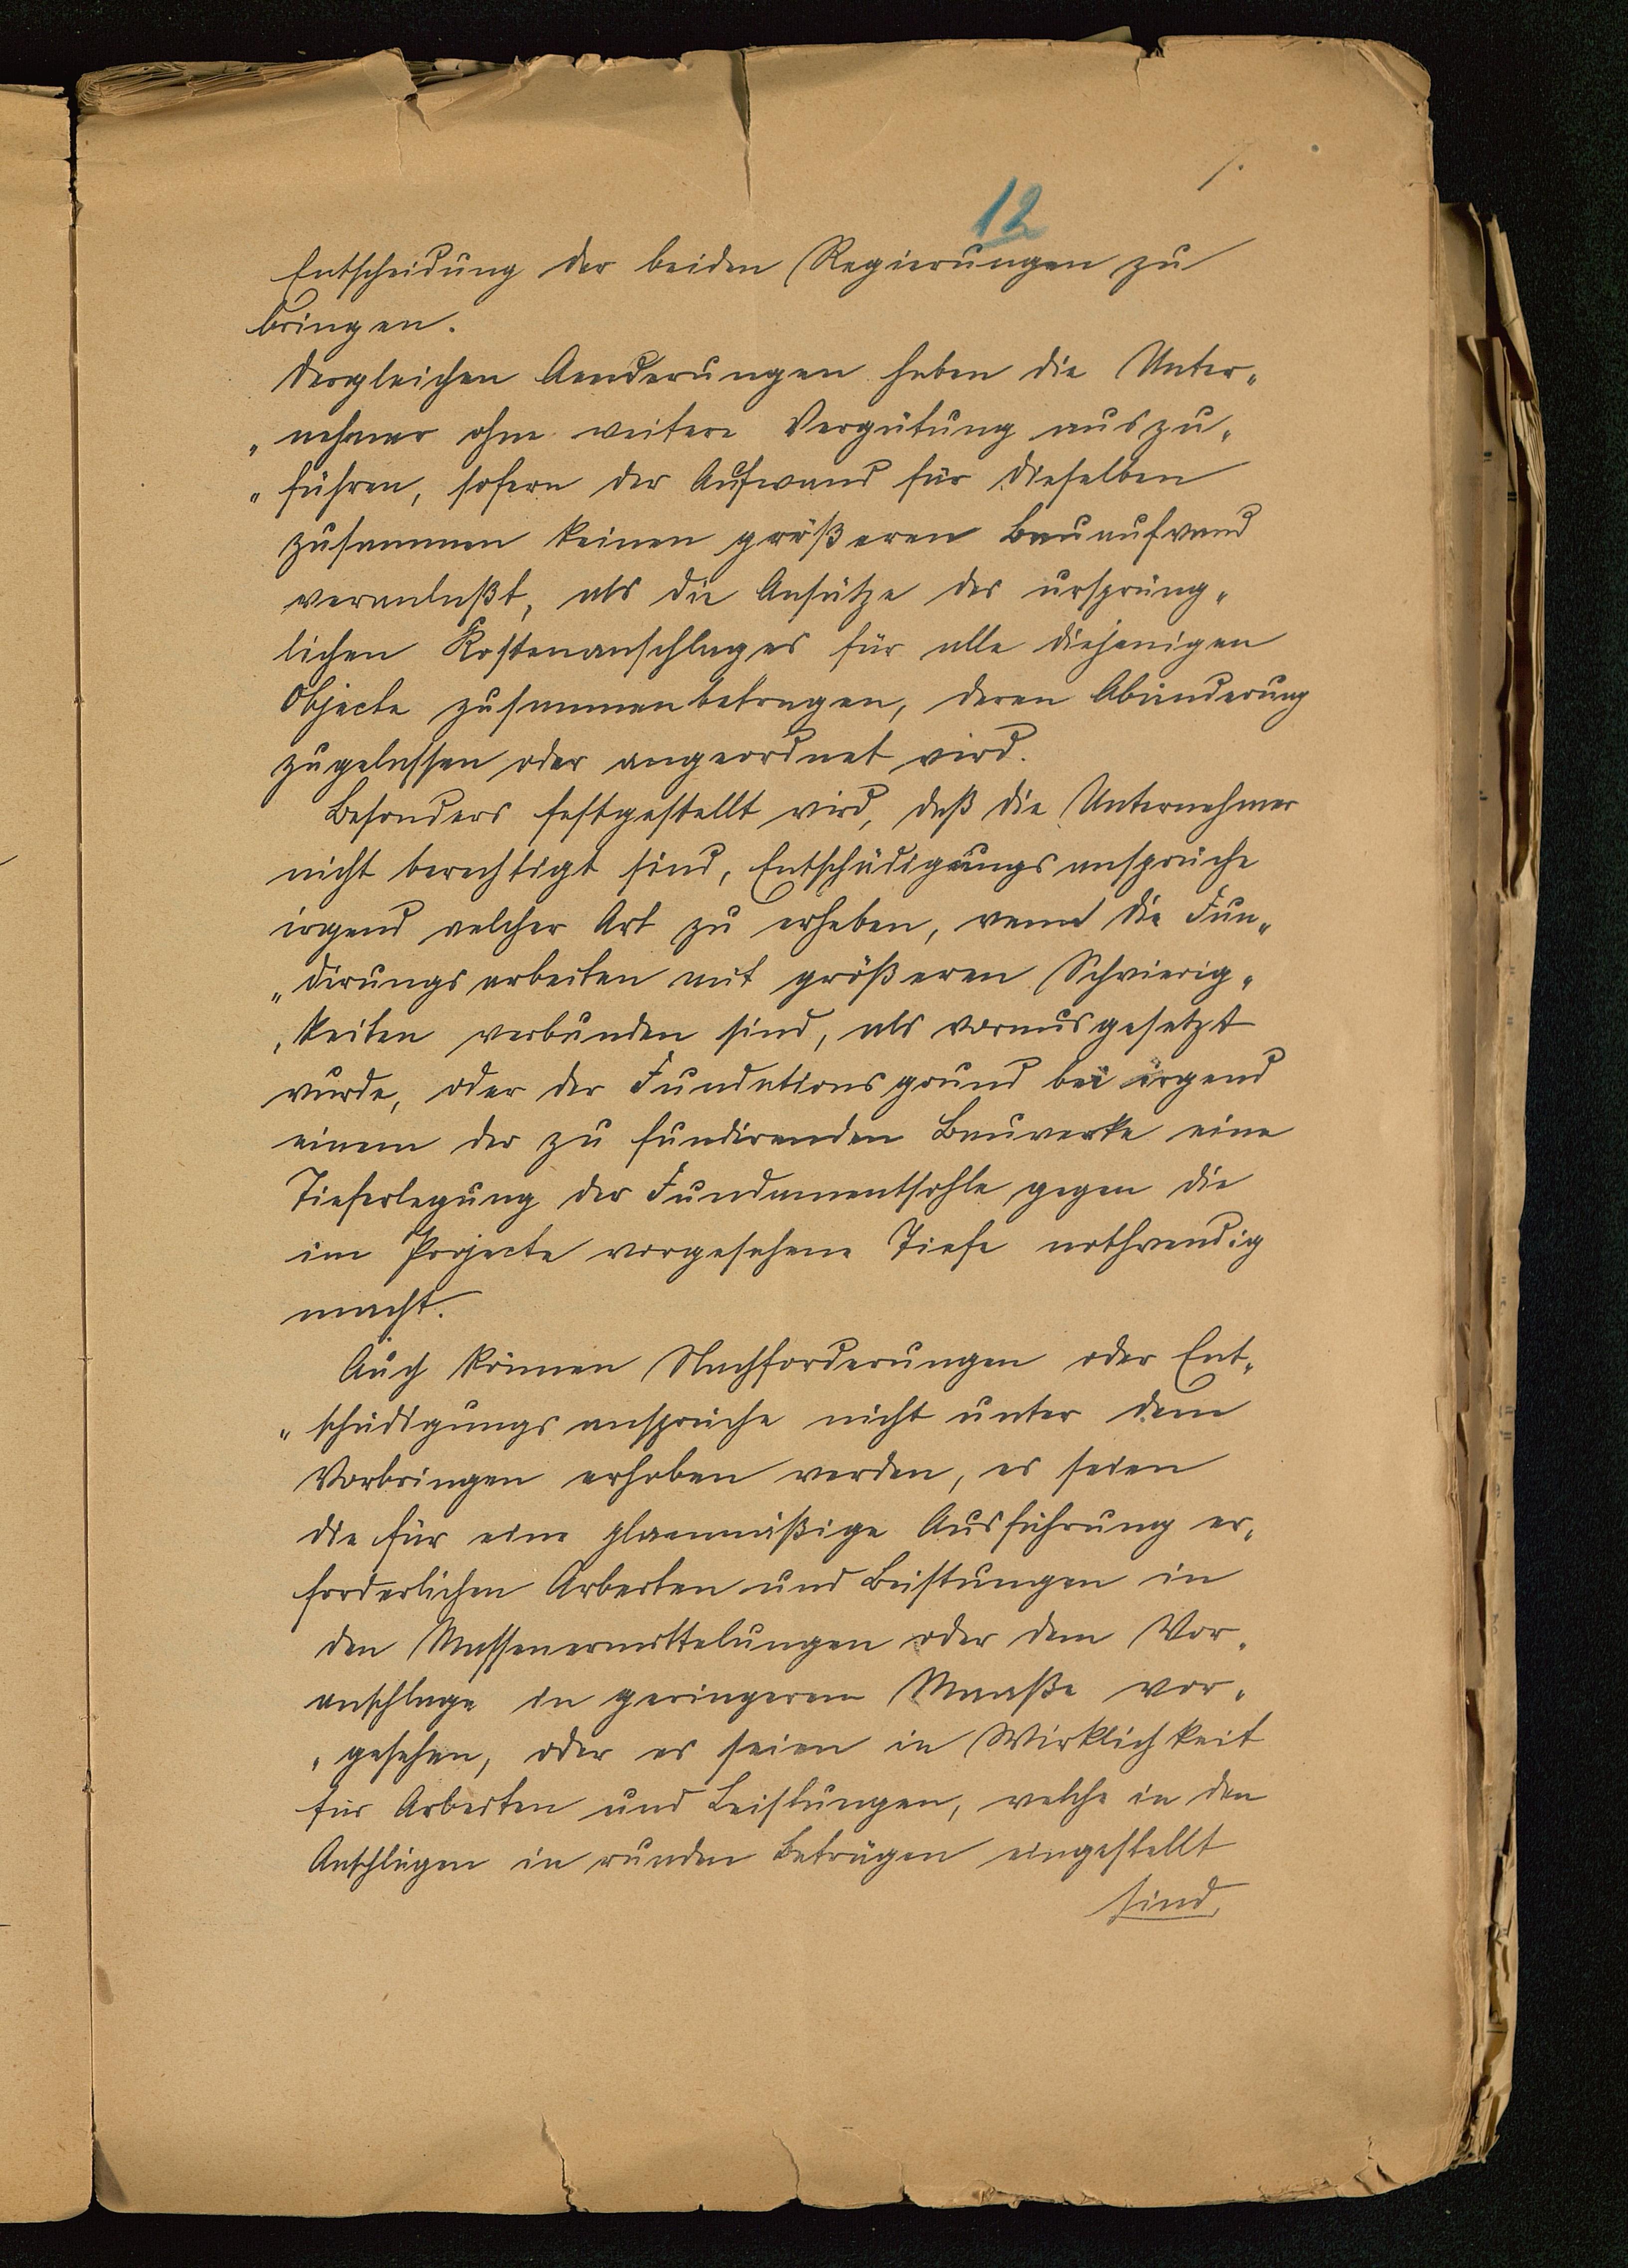 7.
12
Entscheidung der beiden Regierungen zu
bringen.
Dergleichen Aenderungen haben die Unter„
„nehmer ohne weitere Vergütung auszu„
„führen, sofern der Aufwand für dieselben
zusammen keinen größeren Bauaufwand
veranlaßt, als die Ansätze des ursprüng„
lichen Kostenanschlages für alle diejenigen
Objecte zusammenbetragen, deren Abänderung
zugelassen oder angeordnet wird.
Besonders festgestellt wird, daß die Unternehmer
nicht berechtigt sind, Entschädigungsansprüche
irgend welcher Art zu erheben, wenn die Fun„
„dirungsarbeiten mit größeren Schwierig„
„keiten verbunden sind, als vorausgesetzt
wurde, oder der Fundationsgrund bei irgend
einem der zu fundirenden Bauwerke eine
Tieferlegung der Fundamentsohle gegen die
im Projecte vorgesehene Tiefe nothwendig
macht.
Auch können Nachforderungen oder Ent„
„schädigungsansprüche nicht unter dem
Vorbringen erhoben werden, es seien
die für eine planmäßige Ausführung er„
forderlichen Arbeiten und Leistungen in
den Massenermittelungen oder dem Vor„
anschlage in geringerem Maaße vor„
„gesehen, oder es seien in Wirklichkeit
für Arbeiten und Leistungen, welche in den
Anschlägen in runden Beträgen eingestellt
sind,